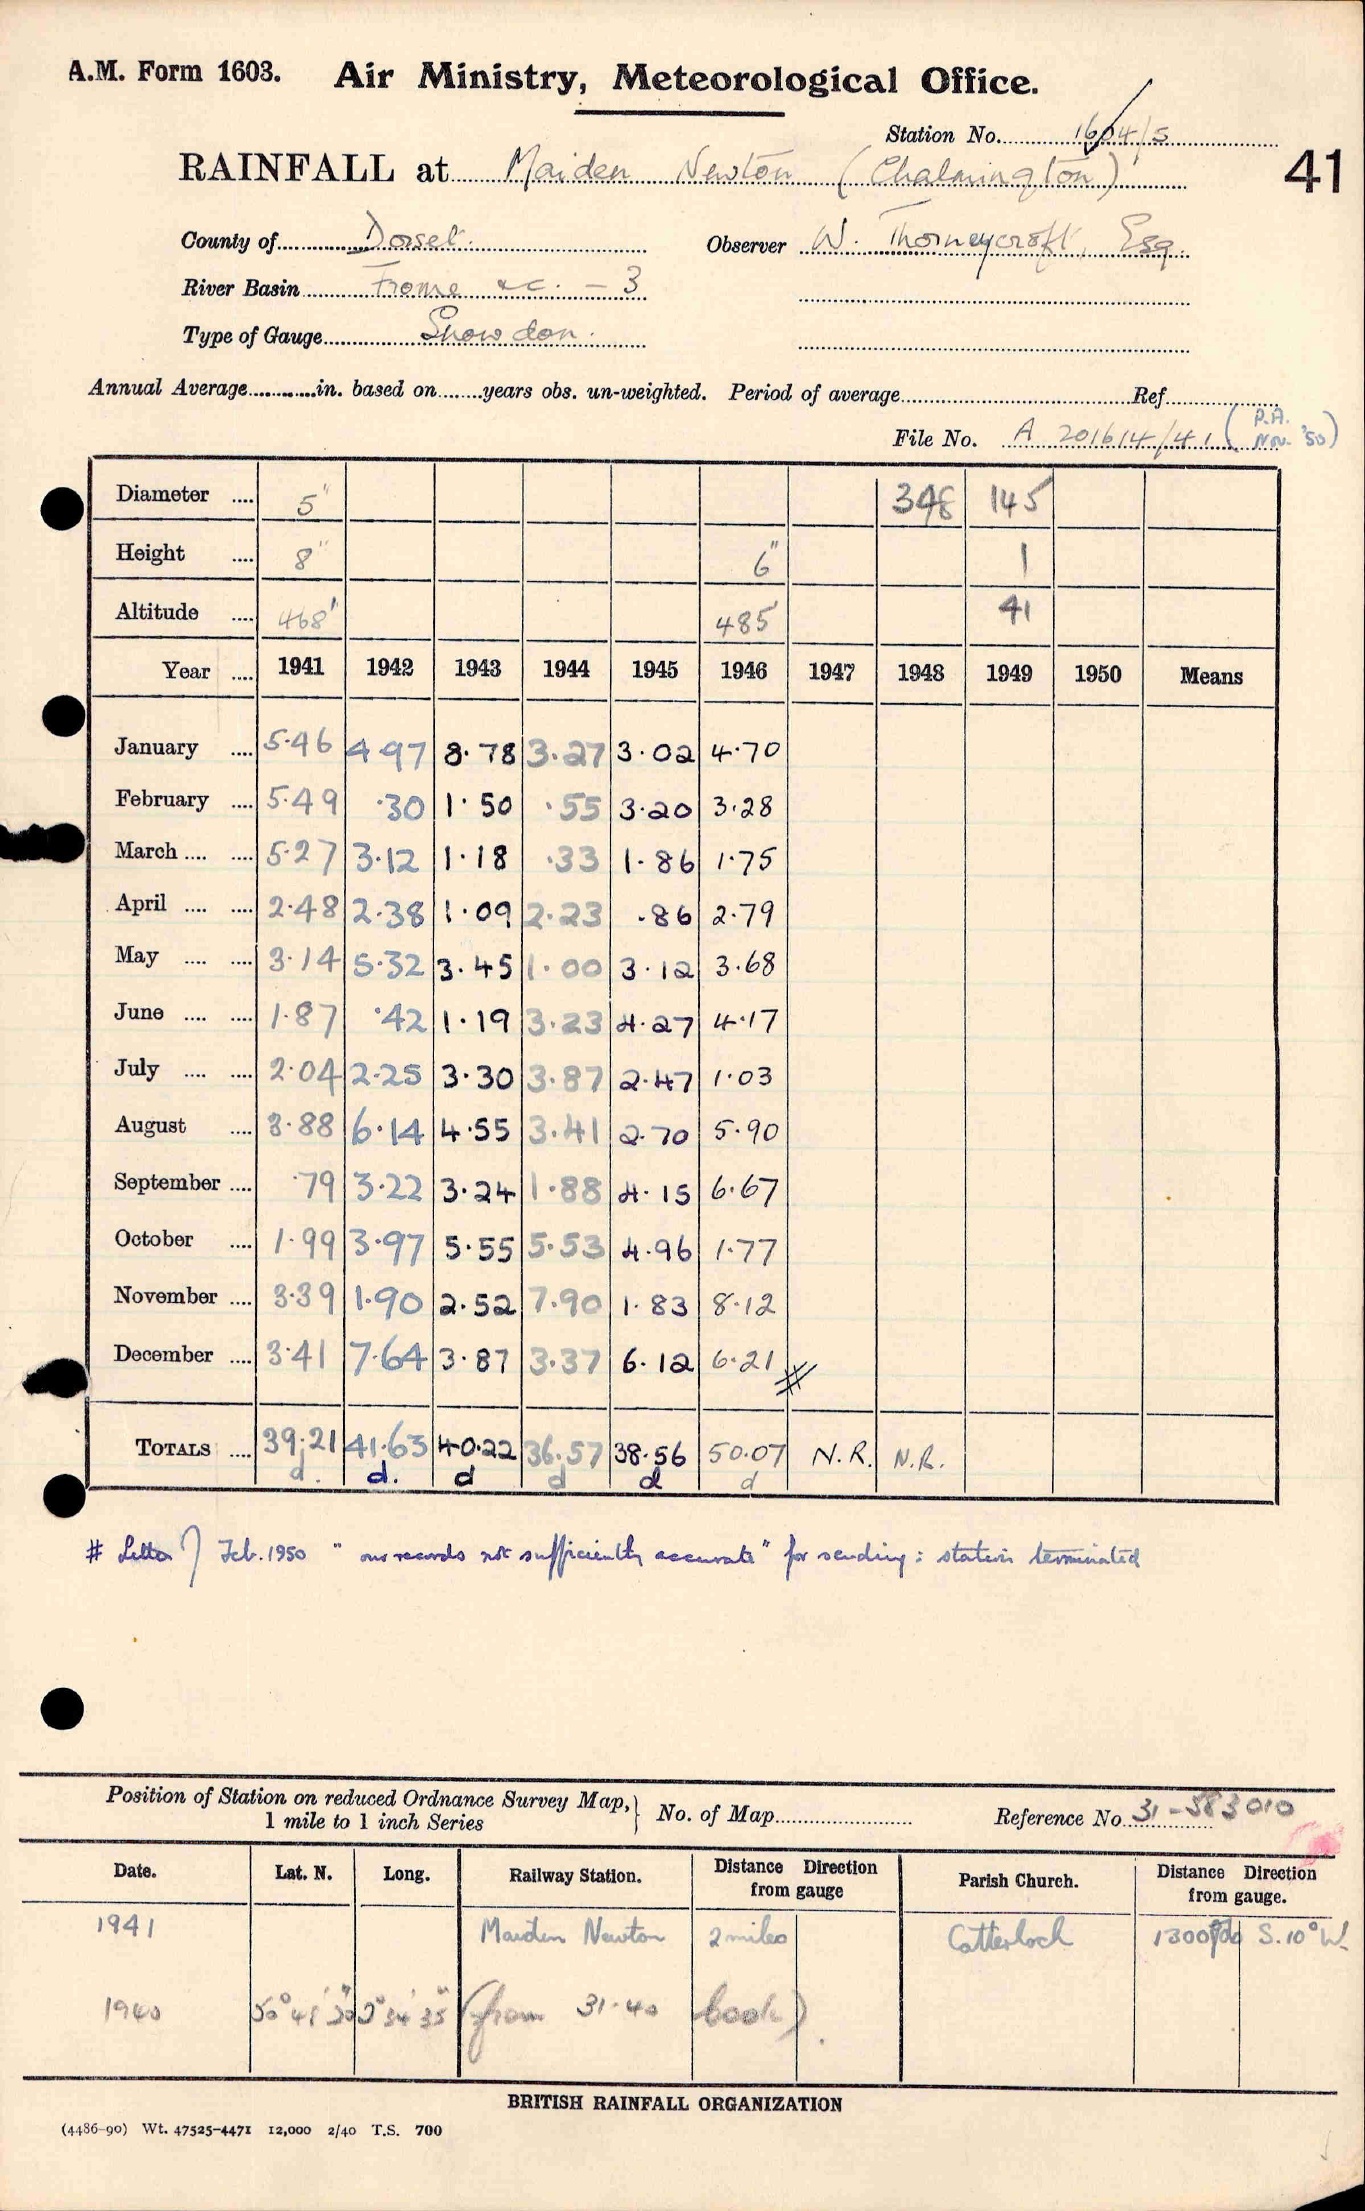 A.M. Form 1603. Air Ministry, Meteorological Office.
Station No. 1604/5
RAINFALL at Maiden Newton (Chalmington) 41
County of Dorset. Observer W. Thorneycroft, Esq.
River Basin Frome &c. - 3
Type of Gauge Snowdon.
Annual Average in. based on years obs. un-weighted. Period of average Ref
File No. A 201614/41 (P.A. Nov. '50)
Diameter 5" 348 145
Height 8" 6" 1
Altitude 468' 485' 41
Year 1941 1942 1943 1944 1945 1946 1947 1948 1949 1950 Means
January 5.46 4.97 8.78 3.27 3.02 4.70
February 5.49 .30 1.50 .55 3.20 3.28
March 5.27 3.12 1.18 .33 1.86 1.75
April 2.48 2.38 1.09 2.23 .86 2.79
May 3.14 5.32 3.45 1.00 3.12 3.68
June 1.87 .42 1.19 3.23 4.27 4.17
July 2.04 2.25 3.30 3.87 2.47 1.03
August 3.88 6.14 4.55 3.41 2.70 5.90
September .79 3.22 3.24 1.88 4.15 6.67
October 1.99 3.97 5.55 5.53 4.96 1.77
November 3.39 1.90 2.52 7.90 1.83 8.12
December 3.41 7.64 3.87 3.37 6.12 6.21 #
TOTALS 39.21 41.63 40.22 36.57 38.56 50.07 N.R. N.R.
d. d. d d d d
# Letter of Feb. 1950 "our records not sufficiently accurate" for sending: station terminated
Position of Station on reduced Ordnance Survey Map,} No. of Map Reference No. 31-583010
1 mile to 1 inch Series
Date. Lat. N. Long. Railway Station. Distance Direction from gauge Parish Church. Distance Direction from gauge.
1941 Maiden Newton 2 miles Catterloch 1300 yds S.10°W.
1940 50° 41' 30" 2° 34' 35" (from 31-40 book).
BRITISH RAINFALL ORGANIZATION
(4486-90) Wt. 47525-4471 12,000 2/40 T.S. 700